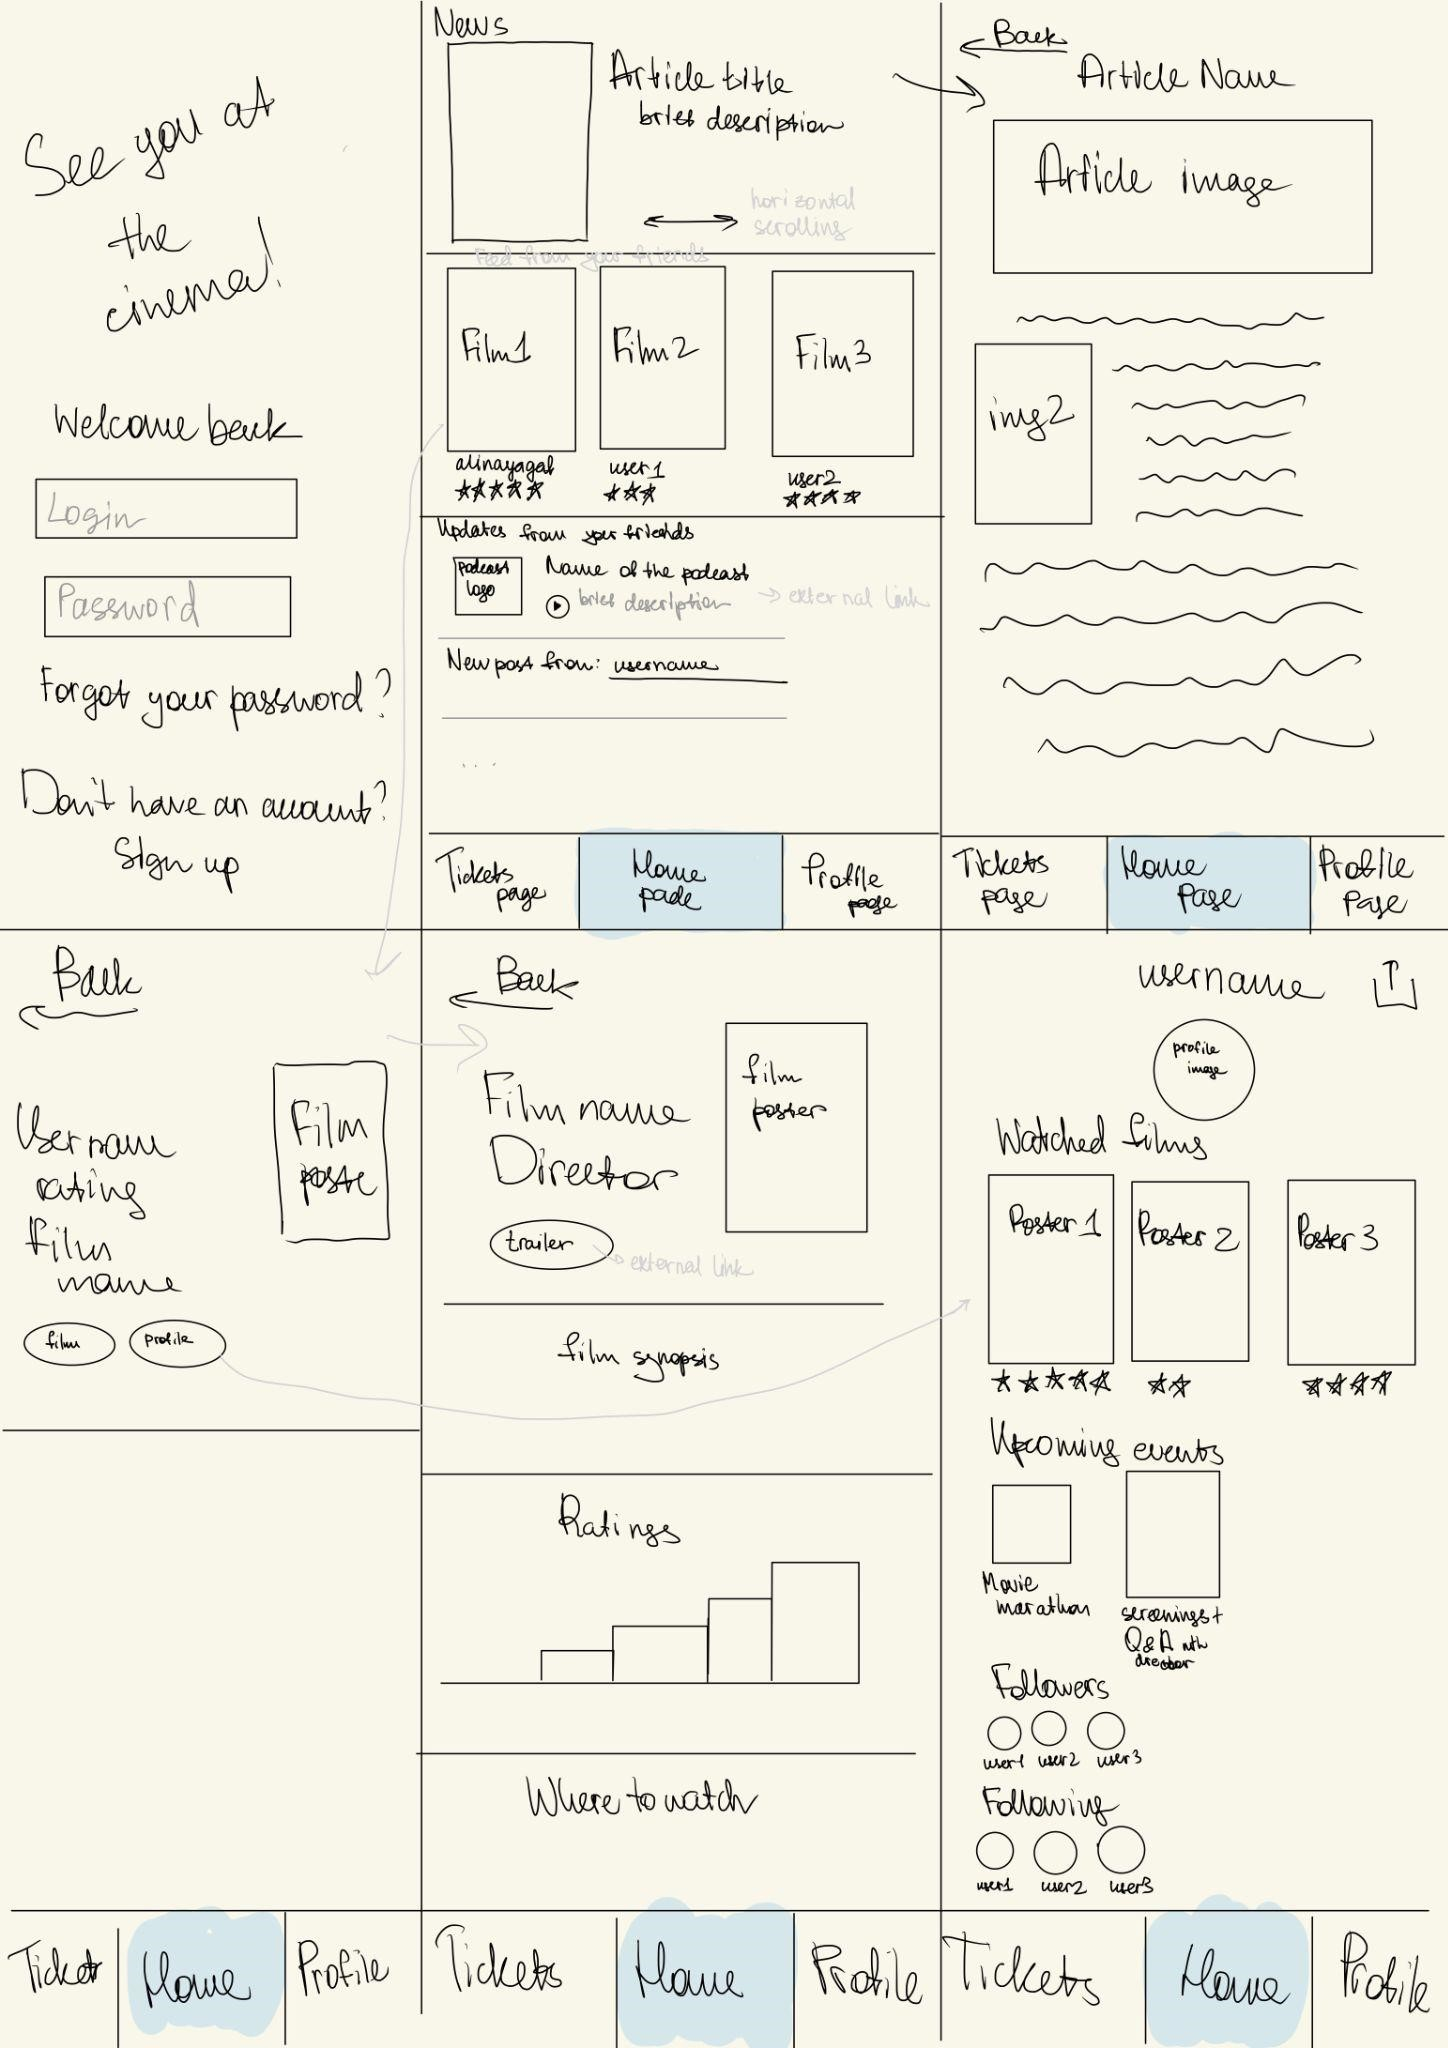 See you at
the
cinema!
Welcome back
Login
Password
Forgot your password?
Don't have an account?
Sign up
News
Article title
brief description
horizontal
scrolling
Feed from your friends
Film1
Film2
Film3
alinayagaf
user1
user2
Updates from your friends
podcast
logo
Name of the podcast
brief description
external link
New post from: username
...
Tickets
page
Home
pade
Profile
page
Back
Article Name
Article image
img2
Tickets
page
Home
Page
Profile
Page
Back
Usernam
rating
film
name
Film
poste
film
profile
Ticket
Home
Profile
Back
Film name
Director
film
poster
trailer
external link
film synopsis
Ratings
Where to watch
Tickets
Home
Profile
username
profile
image
Watched films
Poster 1
Poster 2
Poster 3
Upcoming events
Movie
marathon
screenings +
Q&A with
director
Followers
user1
user2
user3
Following
user1
user2
user3
Tickets
Home
Profile